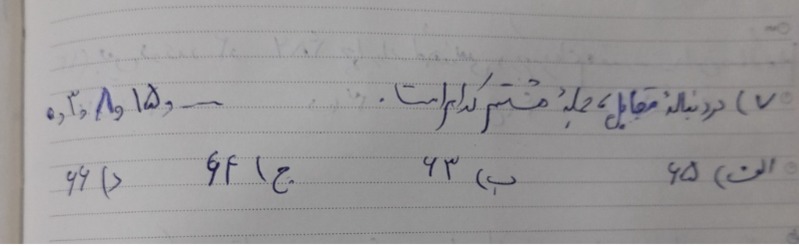 ۷) در دنبالهٔ مقابل، جملهٔ هشتم کدام است. ۰, ۳, ۸, ۱۵, ...
الف) ۶۵ ب) ۶۳ ج) ۶۴ د) ۶۶